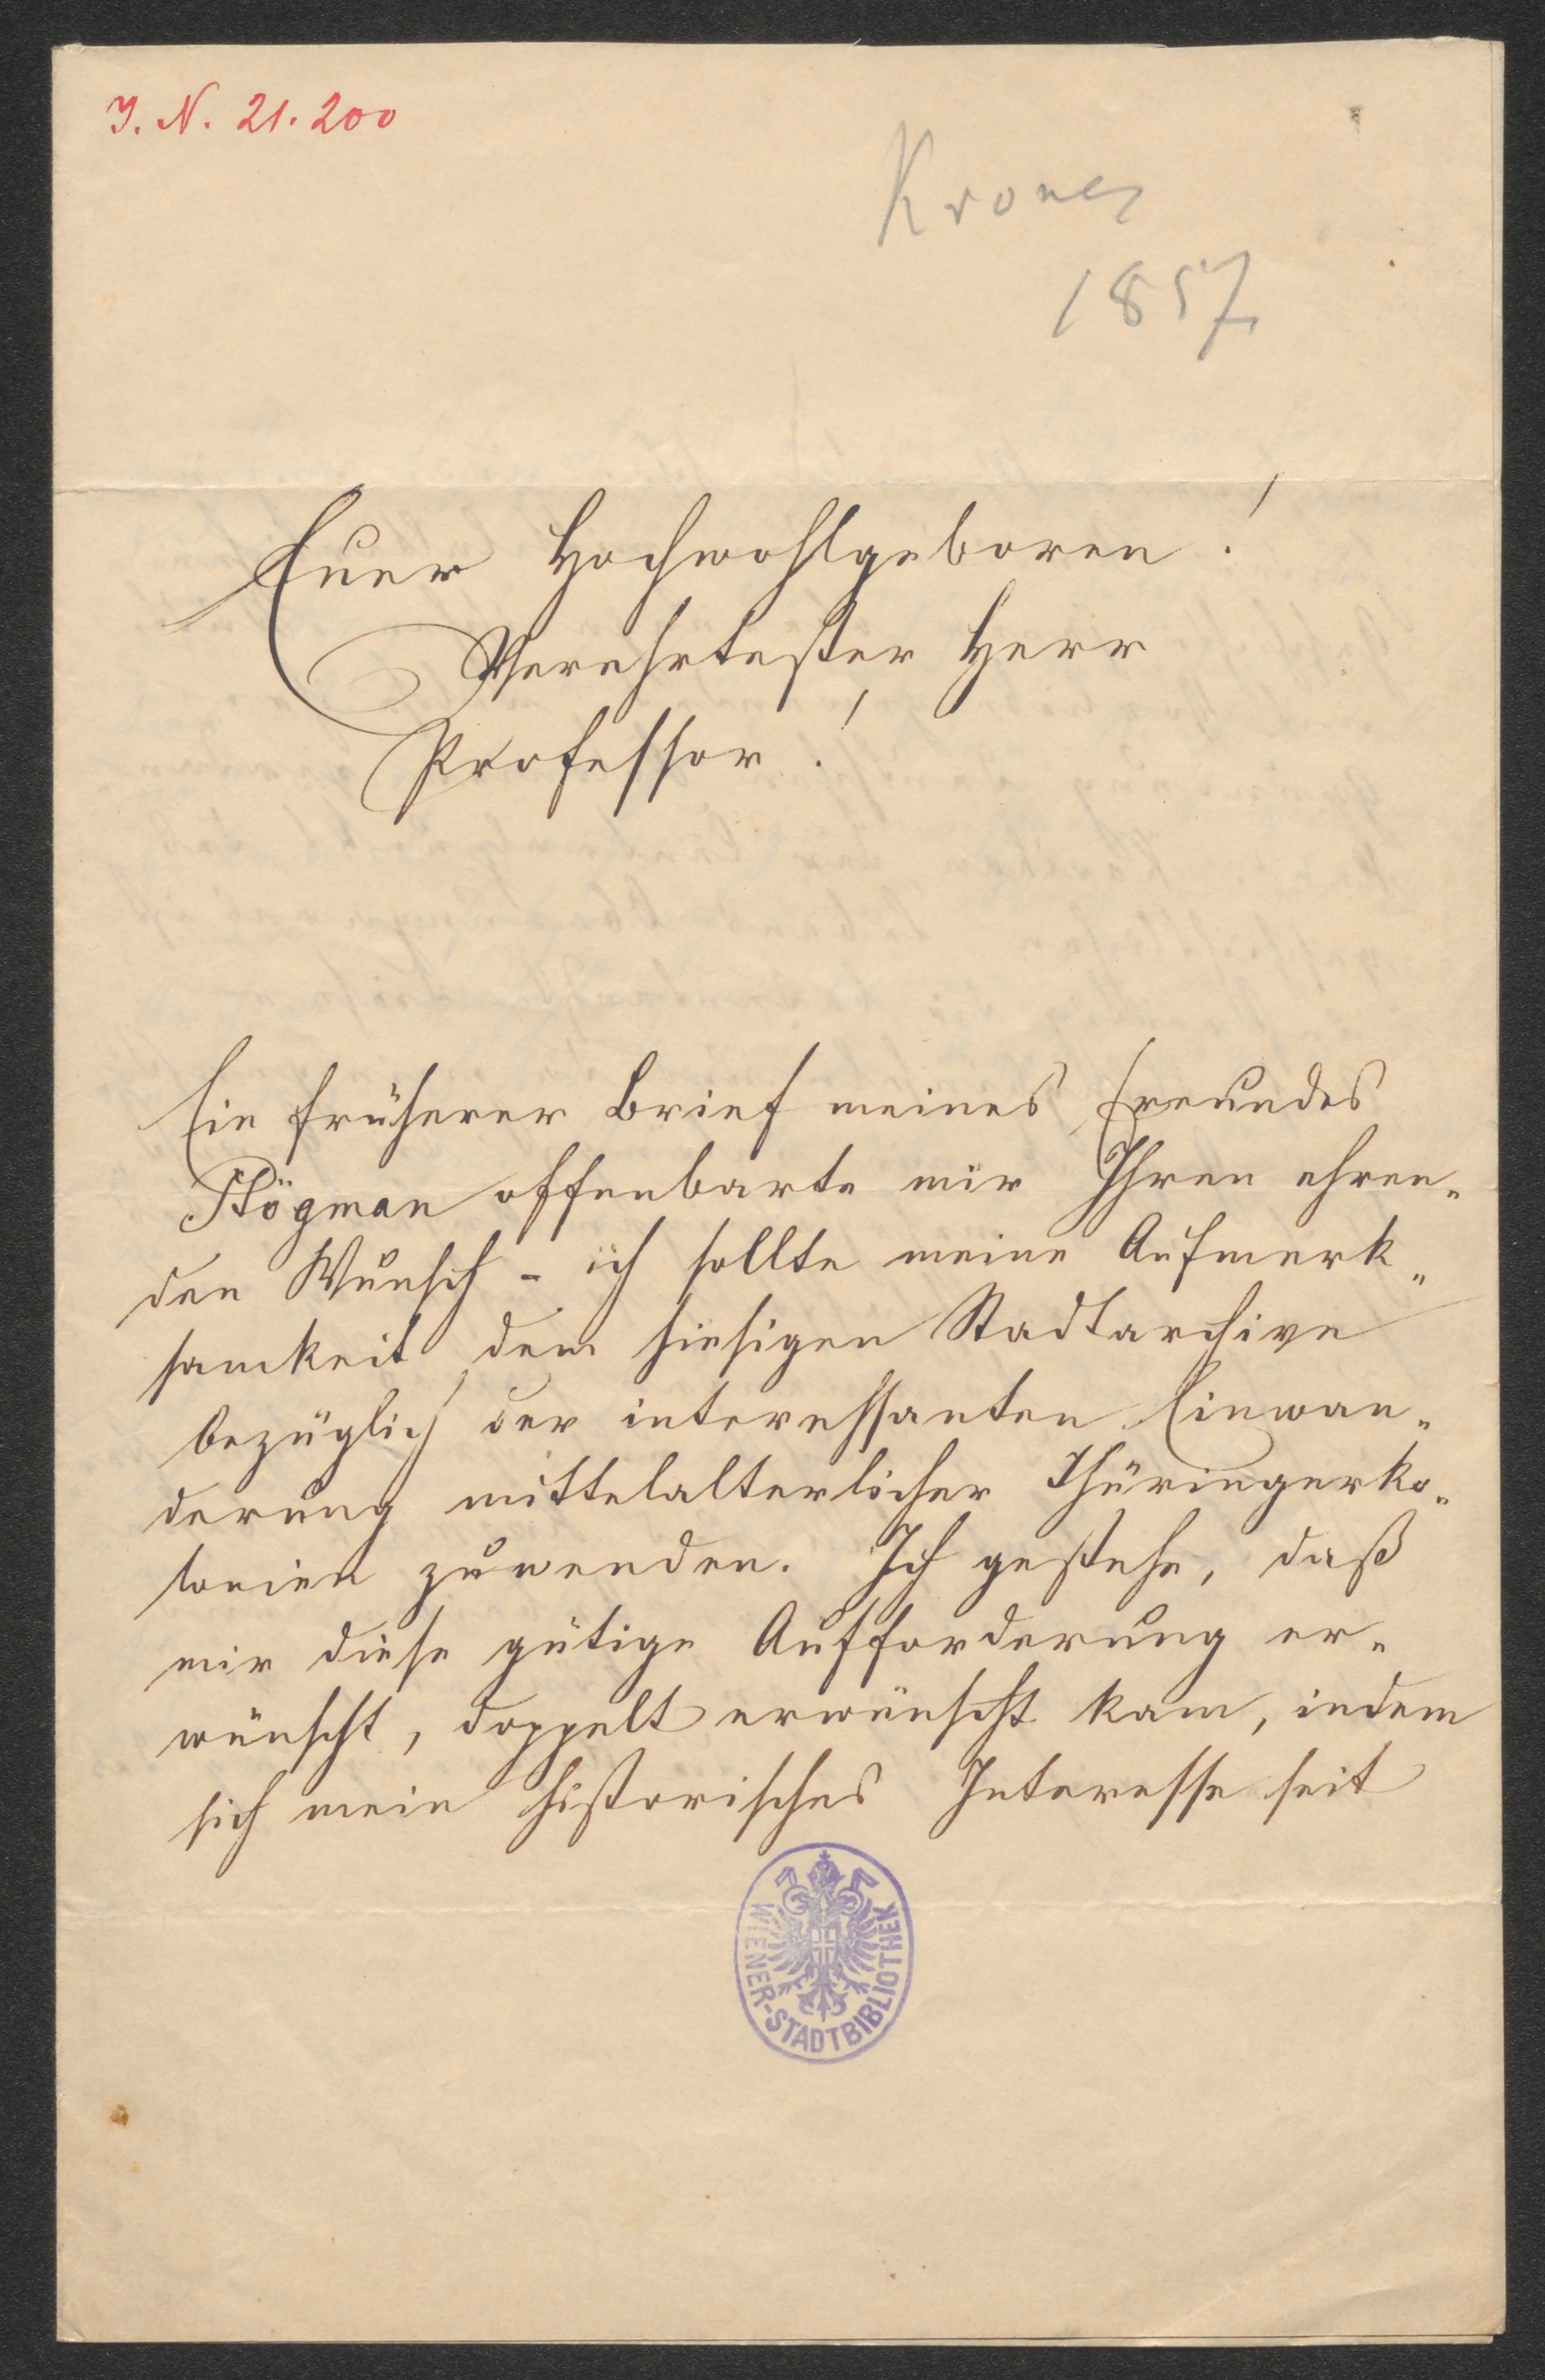 J. N. 21.200
Krones
1857
Euer Hochwohlgeboren!
Verehrtester Herr
Professor!
Ein früherer Brief meines Freundes
Plögman offenbarte mir Ihren ehren-
den Wunsch - ich sollte meine Aufmerk-
samkeit dem hiesigen Stadtarchive
bezüglich der interessanten Einwan-
derung mittelalterlicher Thüringerko-
lonien zuwenden. Ich gestehe, daß
mir diese gütige Aufforderung er-
wünscht, doppelt erwünscht kam, indem
sich mein historisches Interesse seit
WIENER-STADTBIBLIOTHEK